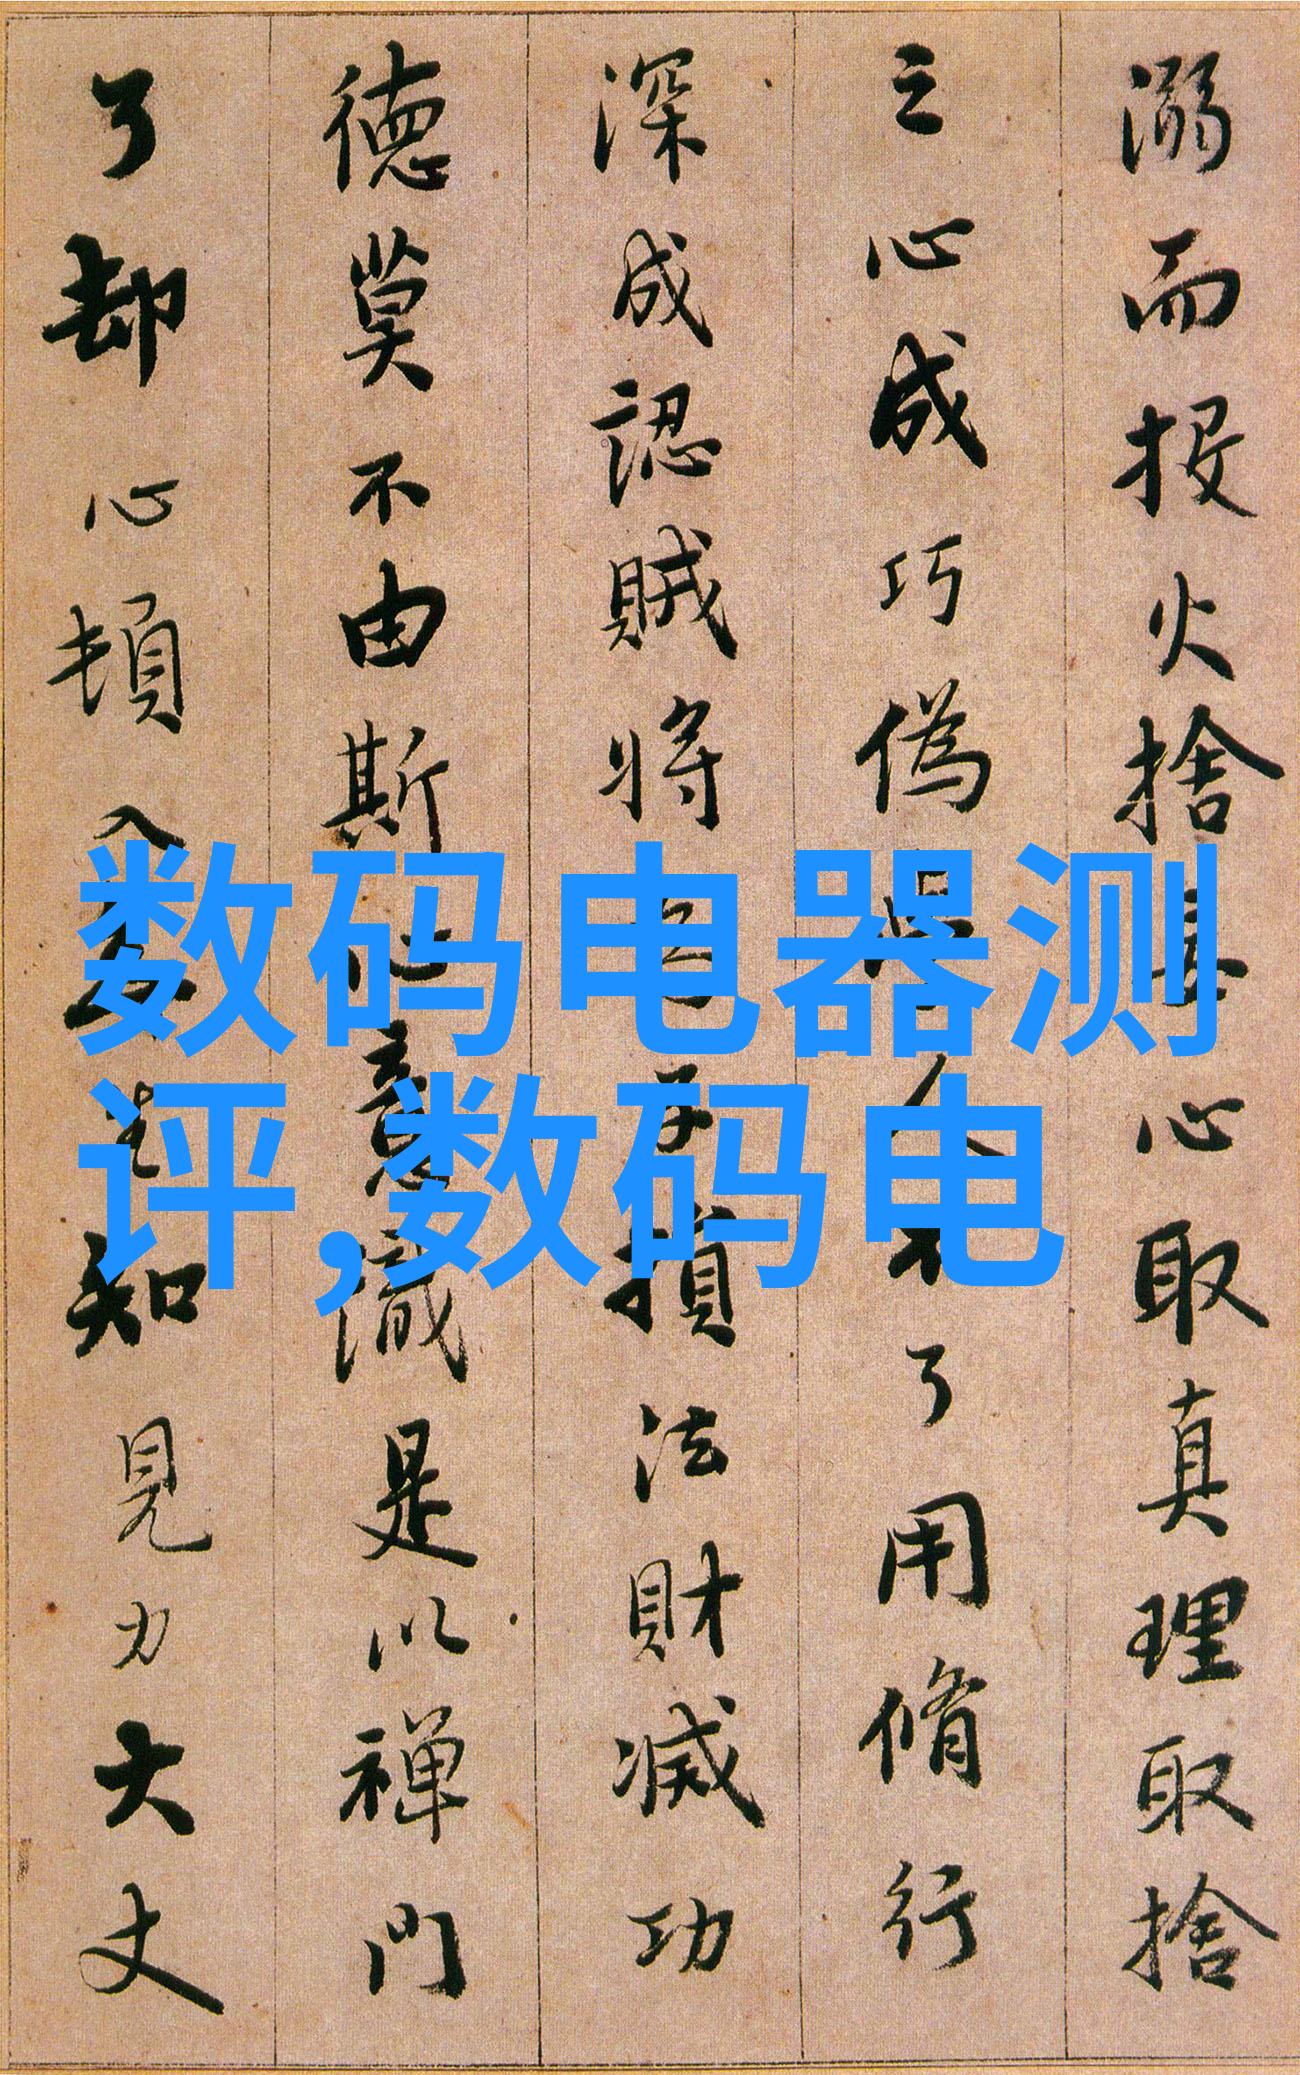 溺而投火捨妄心取真理取捨
之心成巧偽學人不了用脩行
深成認賊將為子損法財滅功
德莫不由斯心意識是以禪門
了却心頓入無生知見力大丈
数码电器测
评,数码电